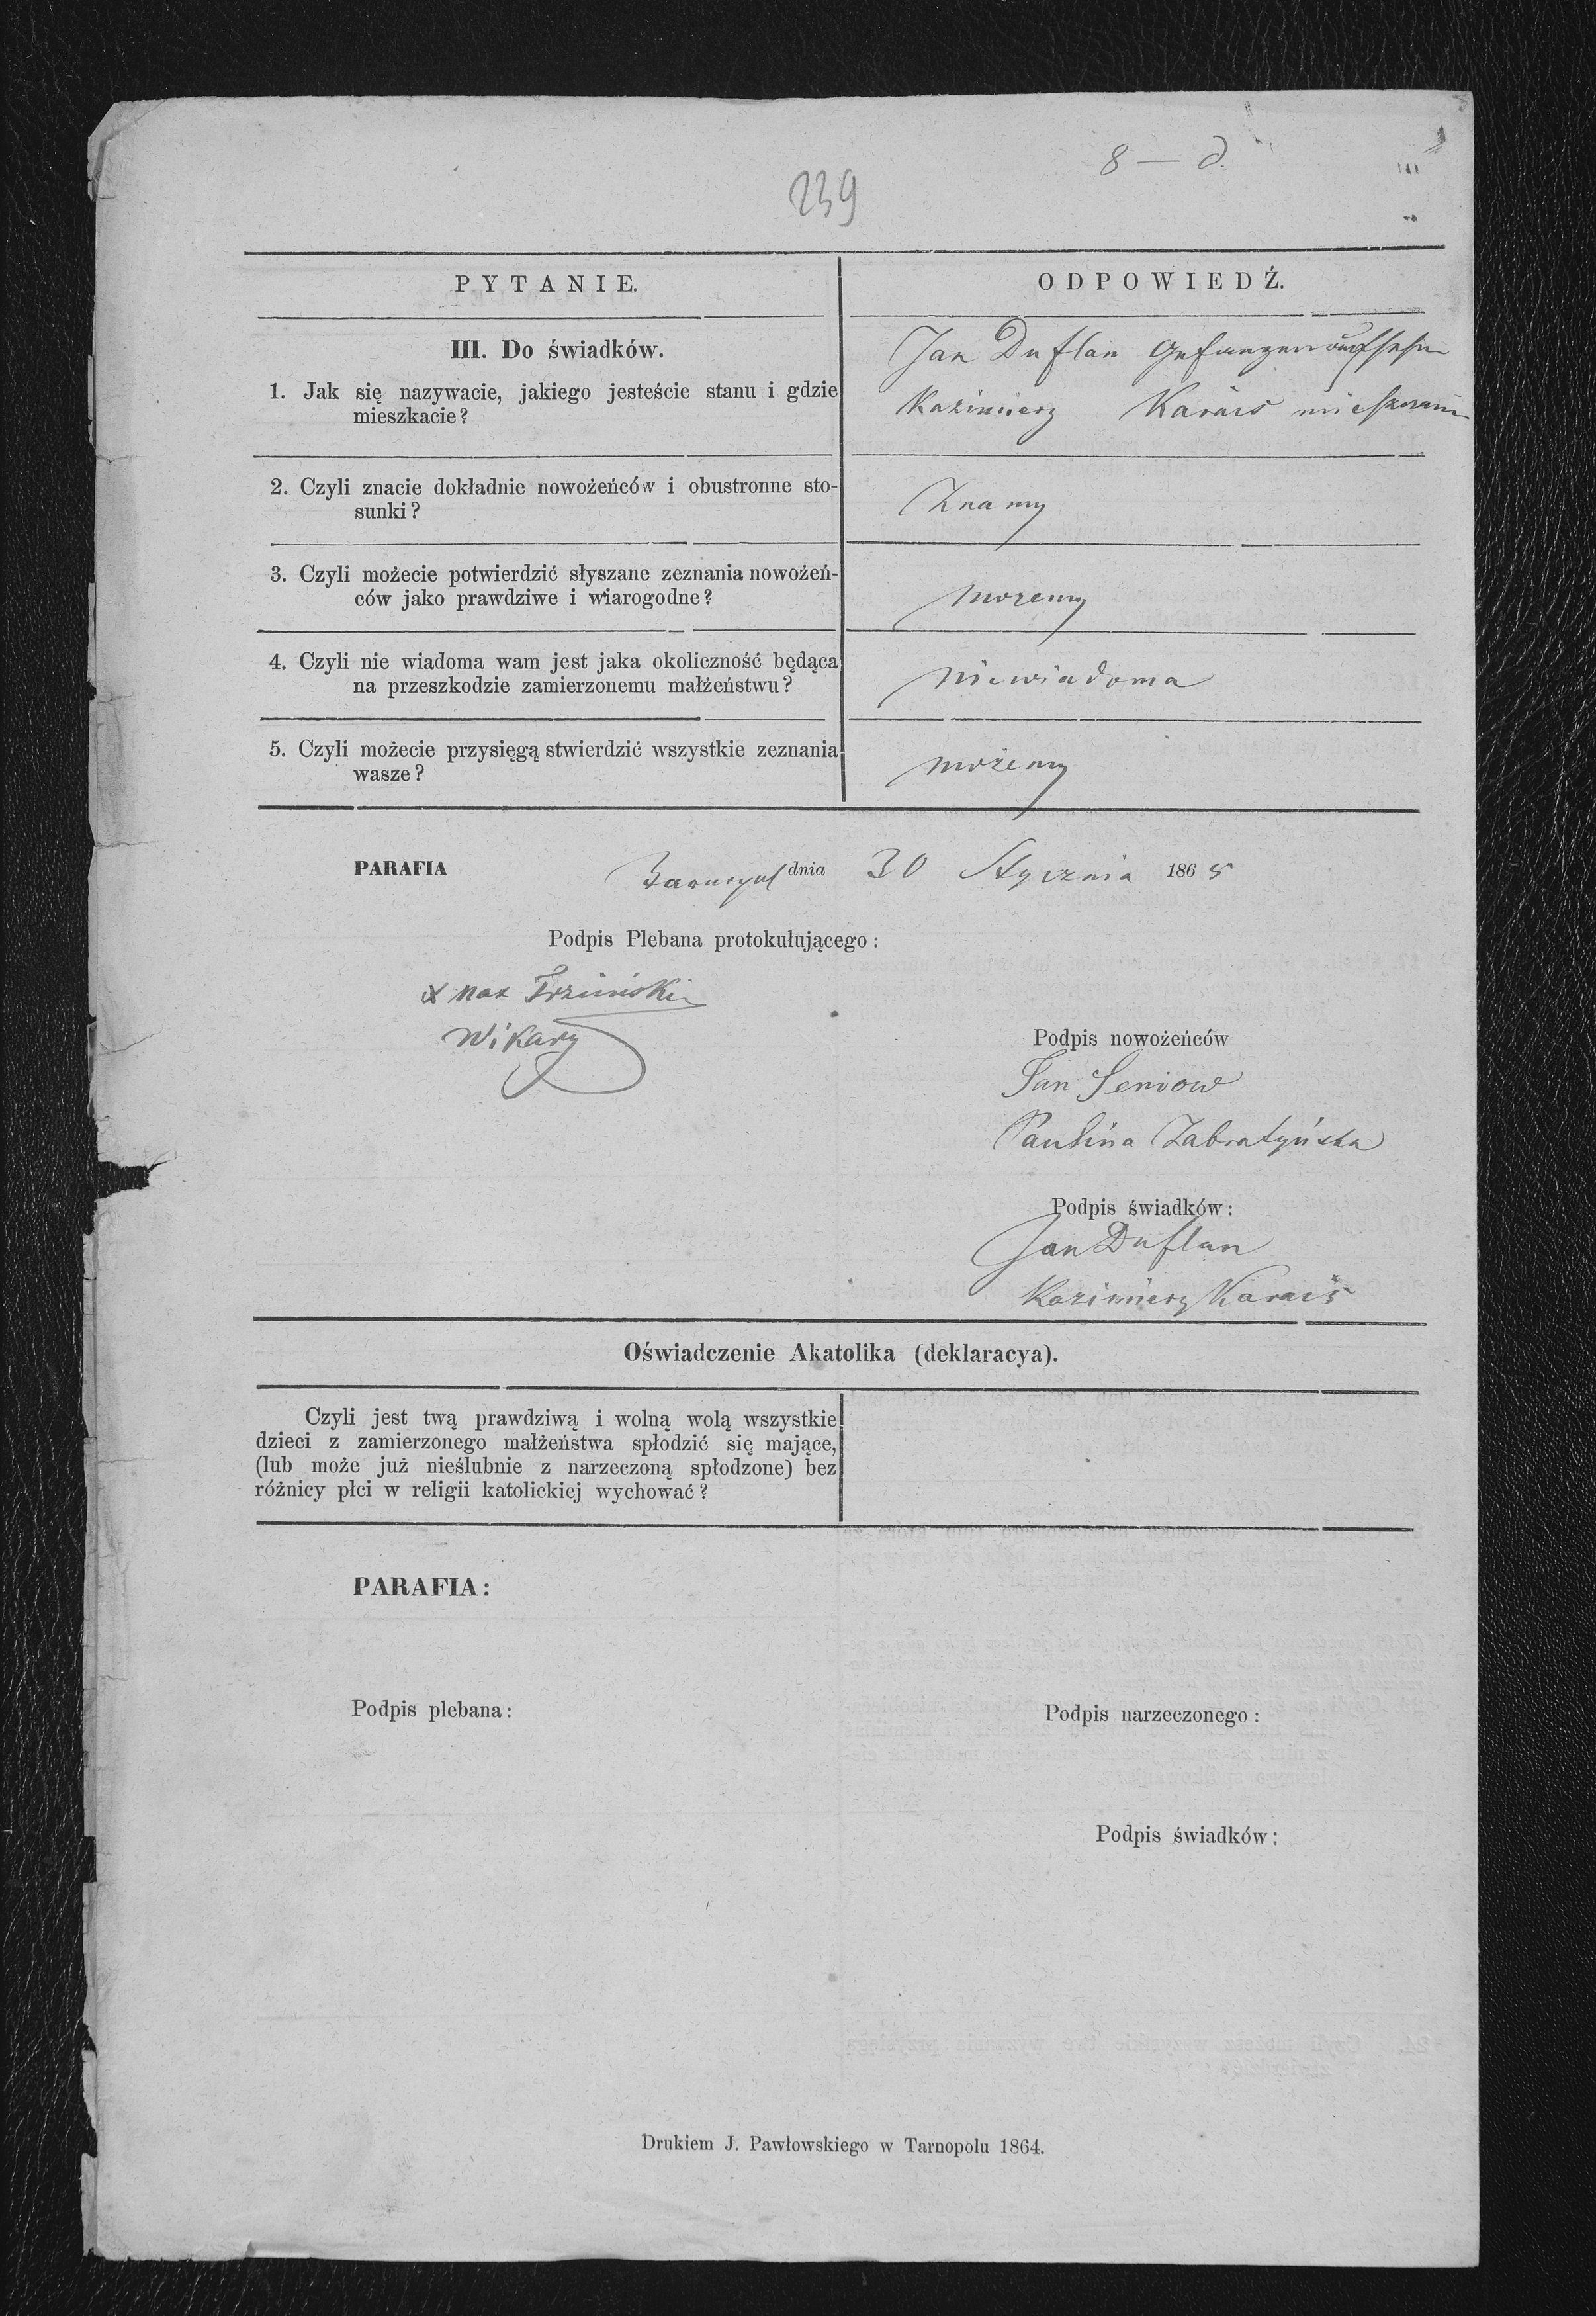 8 — d.
239
PYTANIE.
ODPOWIEDŹ.
III. Do świadków.
1. Jak się nazywacie, jakiego jesteście stanu i gdzie
mieszkacie?
Jan Duflan Gefangenaufseher
Kazimierz Karais mieszczanin
2. Czyli znacie dokładnie nowożeńców i obustronne sto-
sunki?
Znamy
3. Czyli możecie potwierdzić słyszane zeznania nowożeń-
ców jako prawdziwe i wiarogodne?
możemy
4. Czyli nie wiadoma wam jest jaka okoliczność będąca
na przeszkodzie zamierzonemu małżeństwu?
niewiadoma
5. Czyli możecie przysięgą stwierdzić wszystkie zeznania
wasze?
możemy
PARAFIA dnia 30 Stycznia 1865
Podpis Plebana protokułującego:
X Max
Wikary
Podpis nowożeńców
Jan Seniow
Paulina Zabratyńska
Podpis świadków:
Jan Duflan
Kazimierz Karais
Oświadczenie Akatolika (deklaracya).
Czyli jest twą prawdziwą i wolną wolą wszystkie
dzieci z zamierzonego małżeństwa spłodzić się mające,
(lub może już nieślubnie z narzeczoną spłodzone) bez
różnicy płci w religii katolickiej wychować?
PARAFIA:
Podpis plebana:
Podpis narzeczonego:
Podpis świadków:
Drukiem J. Pawłowskiego w Tarnopolu 1864.